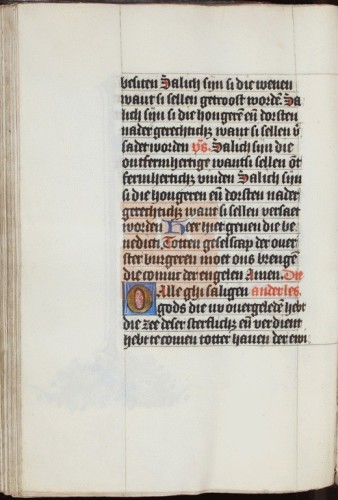 besiten Salich sijn si die wenen
want si sellen getroost wordē. Sa
lich sijn si die hongerē eñ dorsten
nader gerechticħz want si sellen v̄
sadet worden v̄s. Salich sijn die
ontfermhertige wantsi sellen ōt
fermherticħz vinden Salich sijn
si die hongeren eñ dorsten nader
gerechticħz want si sellen versaet
worden Heer hier geuen die be
nedicti. Totten geselscap der ouer
ster burgeren moet ons brengē
die coninc der engelen Amen. Die
O Alle ghi saligen ander les.
gods die nv ouergeledē hebt
die zee deser sterflicħz eñ verdient
hebt te comen totter hauen der ewi